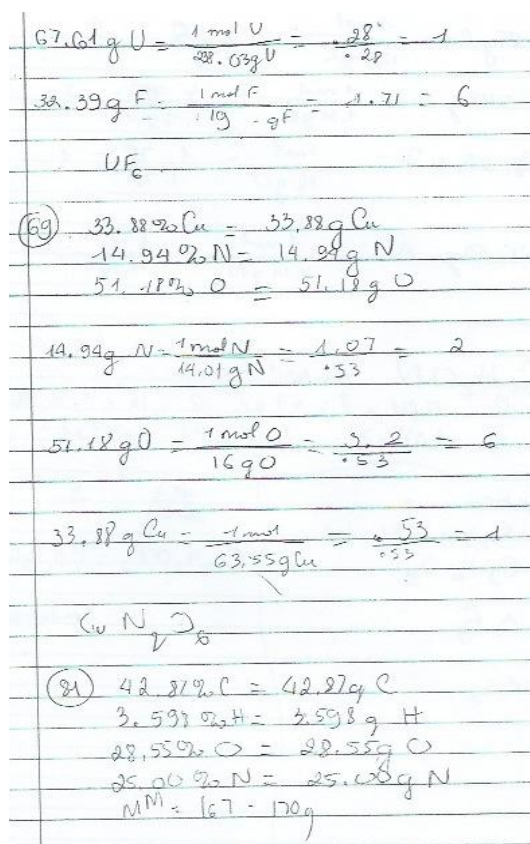 67.61 g U = 1 mol U / 238.03 g U = .28 / .28 = 1
32.39 g F = 1 mol F / 19 - gF = 1.71 = 6
UF6
69 33.88 % Cu = 33.88 g Cu
14.94 % N = 14.94 g N
51.18 % O = 51.18 g O
14.94 g N = 1 mol N / 14.01 g N = 1.07 / .53 = 2
51.18 g O = 1 mol O / 16 g O = 3.2 / .53 = 6
33.88 g Cu = 1 mol / 63.55 g Cu = .53 / .53 = 1
Cu N2 O6
81 42.87 % C = 42.87 g C
3.598 % H = 3.598 g H
28.55 % O = 28.55 g O
25.00 % N = 25.00 g N
MM = 167 - 170 g